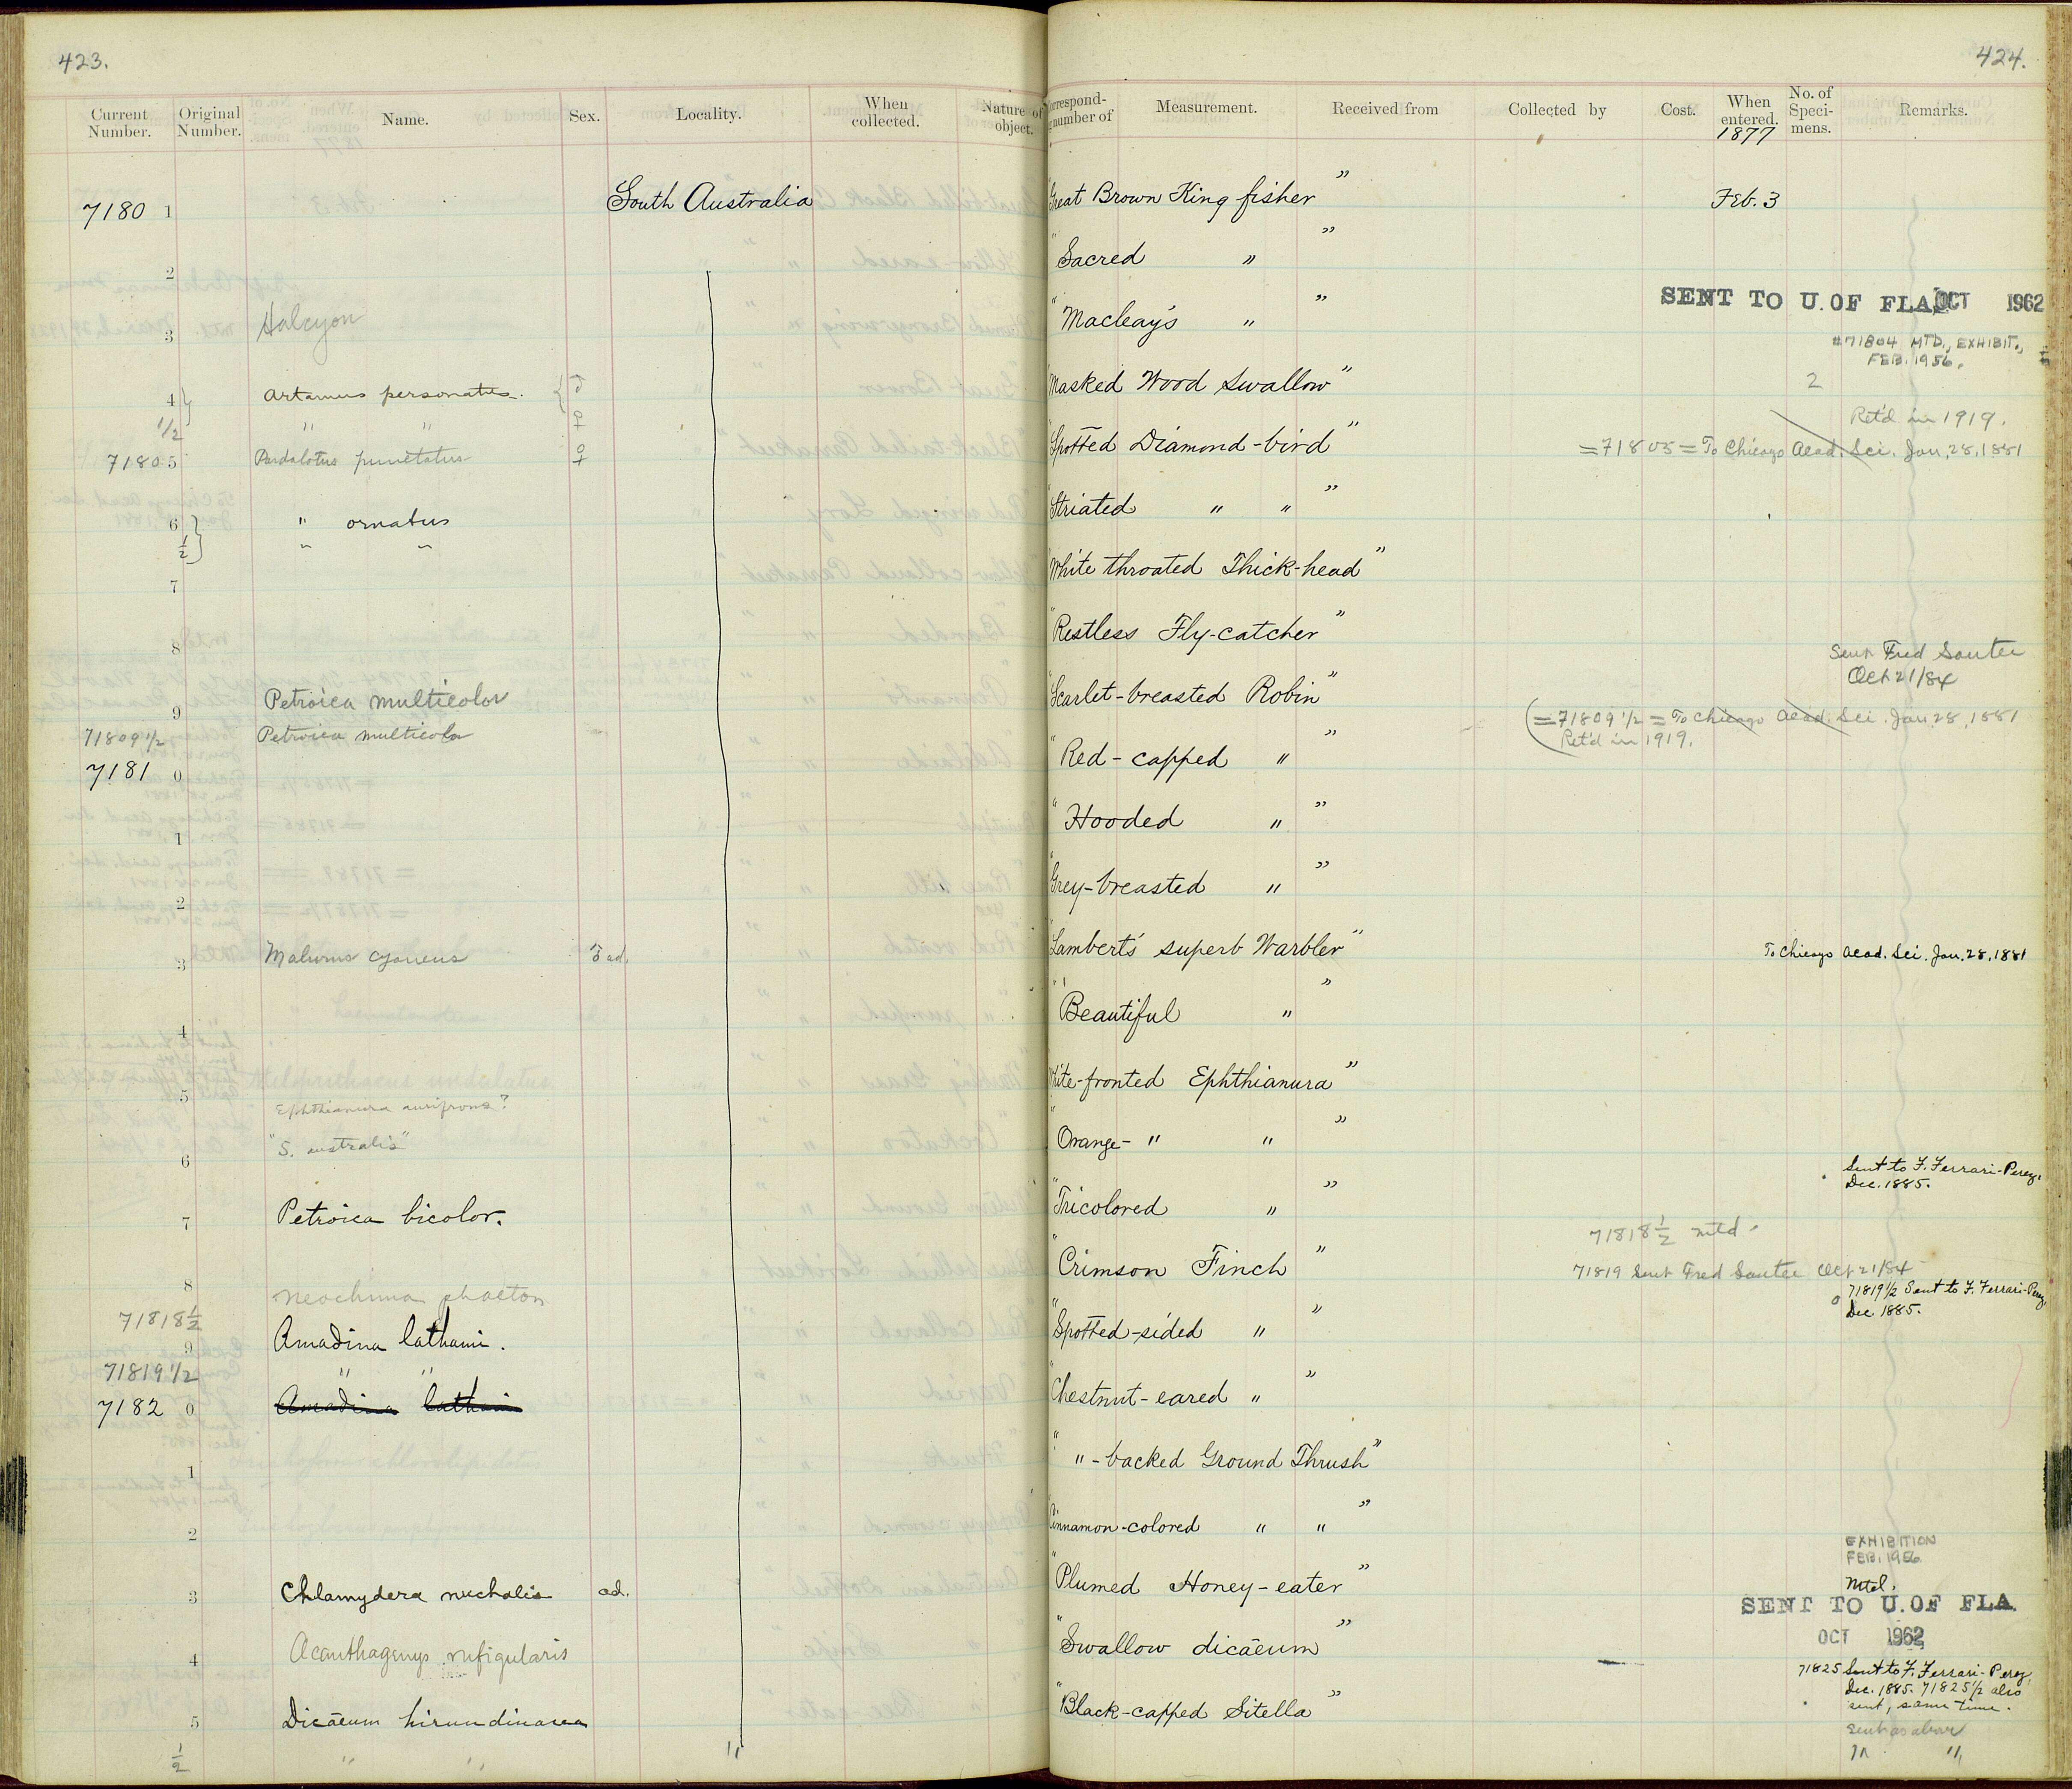 423.
Current Number.
Original Number.
Name.
Sex.
Locality.
When collected.
Nature of object.
7180 1 South Australia
2
3 Halcyon
4 Artamus personatus. ♂
1/2 " " ♀
71805 Pardalotus punctatus ♀
6 " ornatus
1/2 " "
7
8
9 Petroica multicolor
71809 1/2 Petroica multicolor
7181 0
1
2
3 Malurus cyaneus ♂ ad.
4
5 Ephthianura aurifrons?
6 "S. australis"
7 Petroica bicolor.
8 Neochmia phaeton
71818 1/2
9 Amadina lathami.
71819 1/2 " "
7182 0 Amadina lathami
1
2
3 Chlamydera nuchalis ad.
4 Acanthagenys rufigularis
5 Dicäeum hirundinacea
1/2 " " "
424.
Correspond-
number of
Measurement.
Received from
Collected by
Cost.
When entered.
1877
No. of Speci-mens.
Remarks.
"Great Brown King fisher" Feb. 3
"Sacred " "
"Macleay's " "
SENT TO U. OF FLA. OCT 1962
#71804 MTD., EXHIBIT., FEB. 1956.
"Masked Wood Swallow" 2
Ret'd in 1919.
"Spotted Diamond-bird" =71805= To Chicago Acad. Sci. Jan. 28, 1881
"Striated " " "
"White throated Thick-head"
"Restless Fly-catcher"
Sent Fred Santee
Oct 21/84
"Scarlet-breasted Robin"
(=71809 1/2 = To Chicago Acad. Sci. Jan 28, 1881
Ret'd in 1919.
"Red-capped " "
"Hooded " "
"Grey-breasted " "
"Lambert's superb Warbler" To Chicago Acad. Sci. Jan. 28, 1881
"Beautiful " "
White-fronted Ephthianura"
"Orange- " " "
Sent to F. Ferrari-Perez,
Dec. 1885.
"Tricolored " "
71818 1/2 mtd.
"Crimson Finch"
71819 Sent Fred Santee Oct 21/84
71819 1/2 Sent to F. Ferrari-Perez,
Dec. 1885.
"Spotted-sided " "
"Chestnut-eared " "
" "-backed Ground Thrush"
Cinnamon-colored " " "
EXHIBITION
FEB. 1956
"Plumed Honey-eater" Mtd.
SENT TO U. OF FLA.
OCT 1962
"Swallow dicäeum"
71825 Sent to F. Ferrari-Perez,
Dec. 1885. 71825 1/2 also
sent, same time.
"Black-capped Sitella"
Sent as above
" "